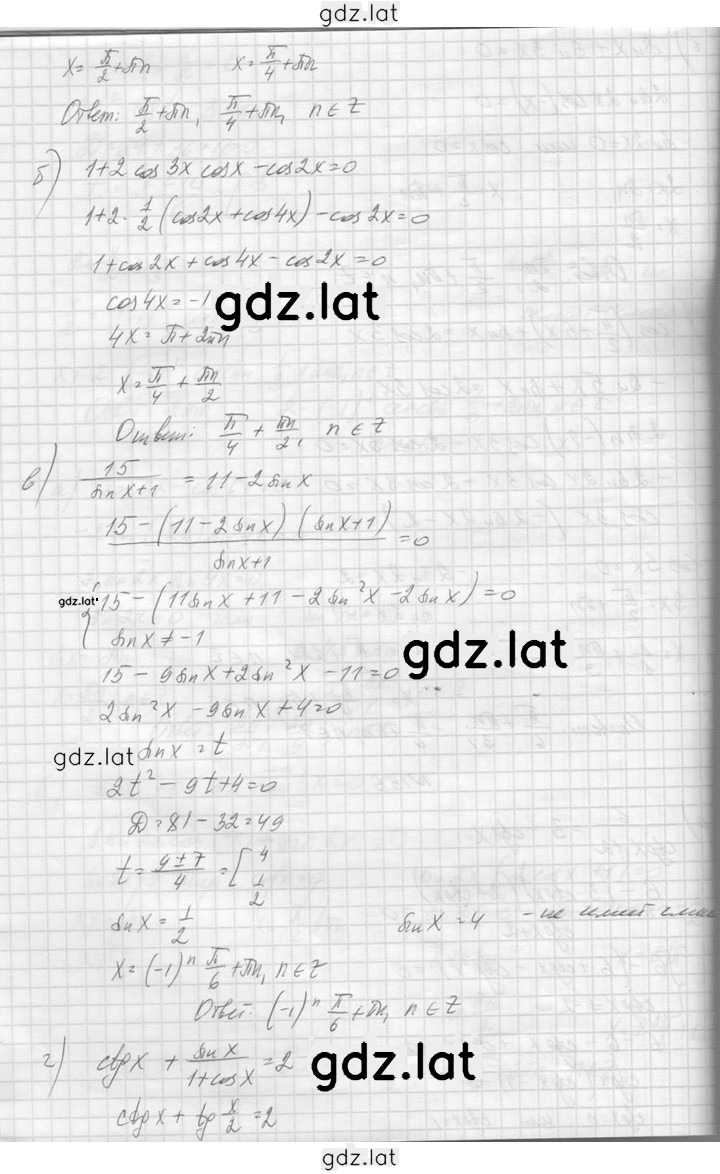 gdz.lat
x = π/2 + πn      x = π/4 + πn
Ответ: π/2 + πn, π/4 + πn, n ∈ Z
б) 1+2 cos 3x cos x - cos 2x = 0
1+2 · 1/2 (cos 2x + cos 4x) - cos 2x = 0
1 + cos 2x + cos 4x - cos 2x = 0
cos 4x = -1
gdz.lat
4x = π + 2πn
x = π/4 + πn/2
Ответ: π/4 + πn/2, n ∈ Z
в) 15/(sin x + 1) = 11 - 2 sin x
(15 - (11 - 2 sin x)(sin x + 1))/(sin x + 1) = 0
gdz.lat
{ 15 - (11 sin x + 11 - 2 sin² x - 2 sin x) = 0
sin x ≠ -1
gdz.lat
15 - 9 sin x + 2 sin² x - 11 = 0
2 sin² x - 9 sin x + 4 = 0
gdz.lat
sin x = t
2t² - 9t + 4 = 0
D = 81 - 32 = 49
t = (9 ± 7)/4 = [ 4 1/2
sin x = 1/2      sin x = 4 - не имеет
x = (-1)ⁿ π/6 + πn, n ∈ Z
Ответ: (-1)ⁿ π/6 + πn, n ∈ Z
г) ctg x + sin x/(1 + cos x) = 2
gdz.lat
ctg x + tg x/2 = 2
gdz.lat